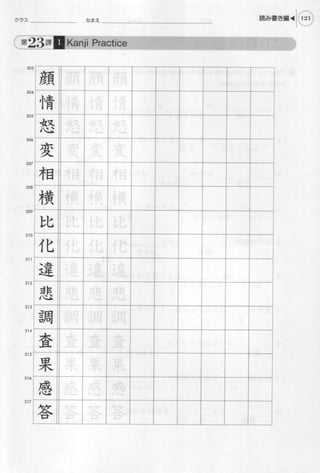 クラス なまえ 読み書き編◀ 121
第23課 1 Kanji Practice
303 顔 顔 顔 顔
304 情 情 情 情
305 怒 怒 怒 怒
306 変 変 変 変
307 相 相 相 相
308 横 横 横 横
309 比 比 比 比
310 化 化 化 化
311 違 違 違 違
312 悲 悲 悲 悲
313 調 調 調 調
314 査 査 査 査
315 果 果 果 果
316 感 感 感 感
317 答 答 答 答